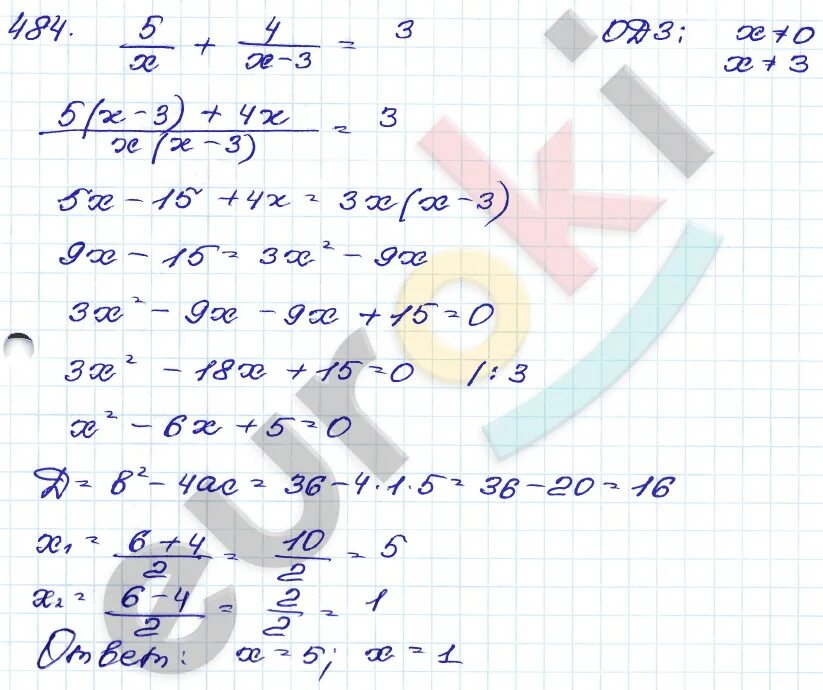 484. 5/x + 4/(x-3) = 3 ОДЗ: x≠0
x≠3
(5(x-3) + 4x)/(x(x-3)) = 3
5x - 15 + 4x = 3x(x-3)
9x - 15 = 3x² - 9x
3x² - 9x - 9x + 15 = 0
3x² - 18x + 15 = 0 /:3
x² - 6x + 5 = 0
Д = в² - 4ac = 36 - 4·1·5 = 36 - 20 = 16
x₁ = (6+4)/2 = 10/2 = 5
x₂ = (6-4)/2 = 2/2 = 1
Ответ: x = 5; x = 1
euroki